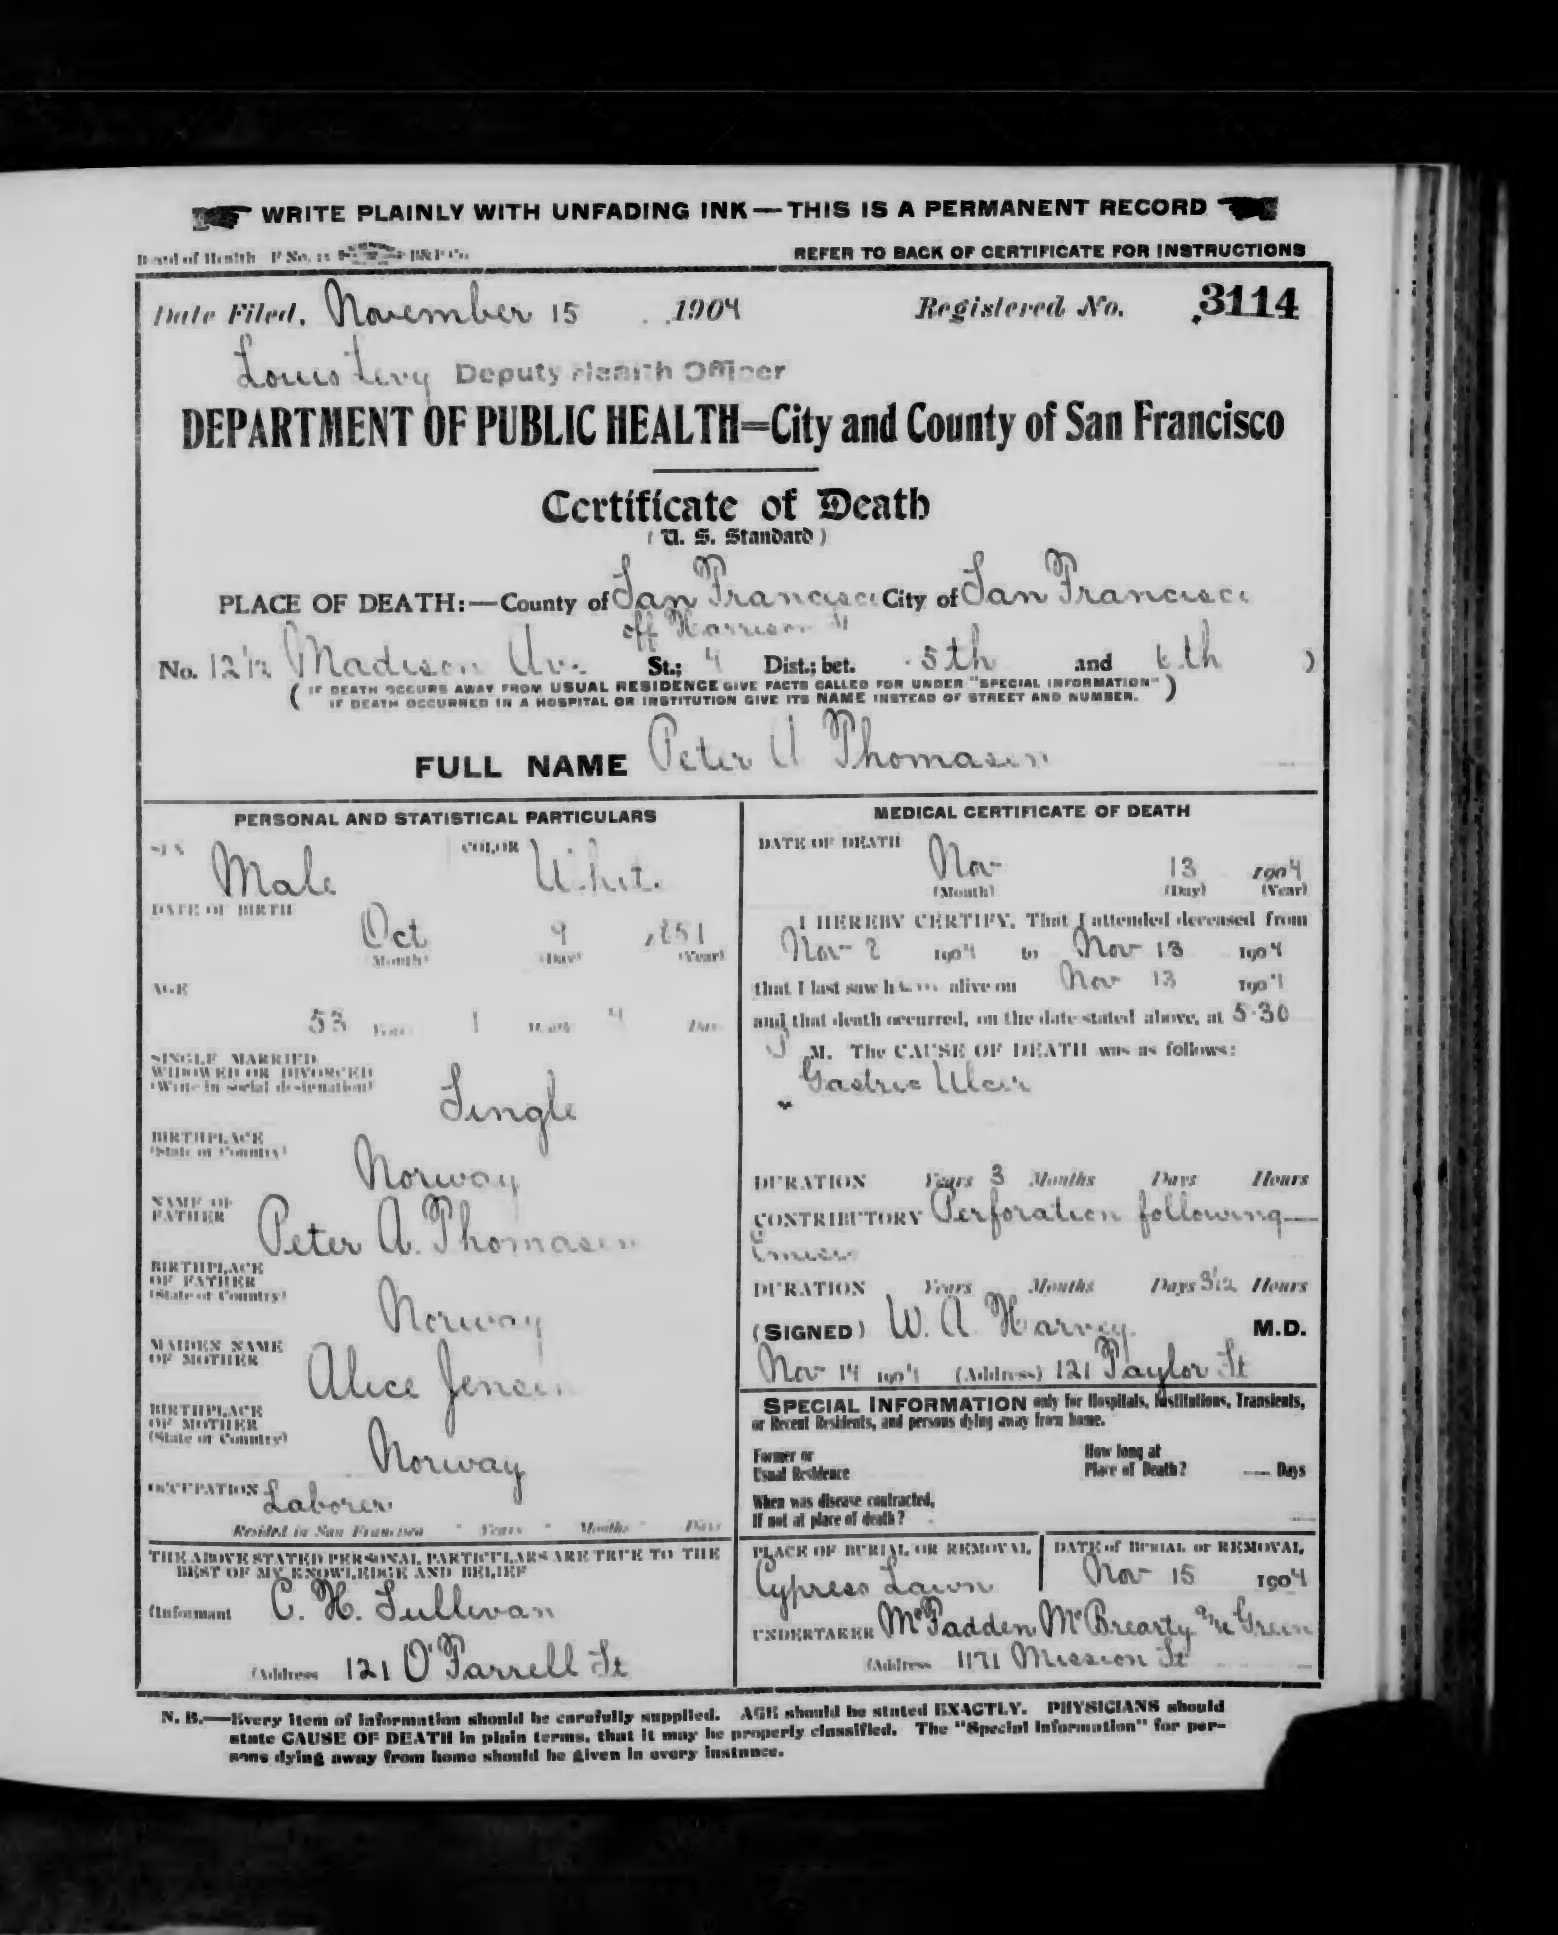 WRITE PLAINLY WITH UNFADING INK — THIS IS A PERMANENT RECORD
Board of Health F No. 11 B&P Co. REFER TO BACK OF CERTIFICATE FOR INSTRUCTIONS
Date Filed, November 15 1904 Registered No. 3114
Louis Levy Deputy Health Officer
DEPARTMENT OF PUBLIC HEALTH=City and County of San Francisco
Certificate of Death
(U. S. Standard)
PLACE OF DEATH:—County of San Francisco City of San Francisco
off Harrison St
No. 12 1/2 Madison Av. St.; 4 Dist.; bet. 5th and 6th )
( IF DEATH OCCURS AWAY FROM USUAL RESIDENCE GIVE FACTS CALLED FOR UNDER "SPECIAL INFORMATION" )
IF DEATH OCCURRED IN A HOSPITAL OR INSTITUTION GIVE ITS NAME INSTEAD OF STREET AND NUMBER.
FULL NAME Peter A Thomasen
PERSONAL AND STATISTICAL PARTICULARS
SEX Male COLOR White
DATE OF BIRTH
Oct 9 1851
(Month) (Day) (Year)
AGE
53 Years 1 Months 4 Days
SINGLE MARRIED
WIDOWED OR DIVORCED
(Write in social designation)
Single
BIRTHPLACE
(State or Country)
Norway
NAME OF
FATHER
Peter A. Thomasen
BIRTHPLACE
OF FATHER
(State or Country)
Norway
MAIDEN NAME
OF MOTHER
Alice Jensen
BIRTHPLACE
OF MOTHER
(State or Country)
Norway
OCCUPATION Laborer
Resided in San Francisco Years Months Days
THE ABOVE STATED PERSONAL PARTICULARS ARE TRUE TO THE
BEST OF MY KNOWLEDGE AND BELIEF
(Informant C. H. Sullivan
(Address 121 O'Farrell St
MEDICAL CERTIFICATE OF DEATH
DATE OF DEATH
Nov 13 1904
(Month) (Day) (Year)
I HEREBY CERTIFY, That I attended deceased from
Nov 2 1904 to Nov 13 1904
that I last saw him alive on Nov 13 1904
and that death occurred, on the date stated above, at 5-30
P M. The CAUSE OF DEATH was as follows:
Gastric Ulcer
DURATION Years 3 Months Days Hours
CONTRIBUTORY Perforation following
Emesis
DURATION Years Months Days 3 1/2 Hours
(SIGNED) W. A. Harvey. M.D.
Nov 14 1904 (Address) 121 Taylor St
SPECIAL INFORMATION only for Hospitals, Institutions, Transients,
or Recent Residents, and persons dying away from home.
Former or
Usual Residence
How long at
Place of Death? Days
When was disease contracted,
If not at place of death?
PLACE OF BURIAL OR REMOVAL
Cypress Lawn
DATE of BURIAL or REMOVAL
Nov 15 1904
UNDERTAKER McFadden McBrearty and Green
(Address 1171 Mission St
N. B.—Every item of information should be carefully supplied. AGE should be stated EXACTLY. PHYSICIANS should
state CAUSE OF DEATH in plain terms, that it may be properly classified. The "Special Information" for per-
sons dying away from home should be given in every instance.